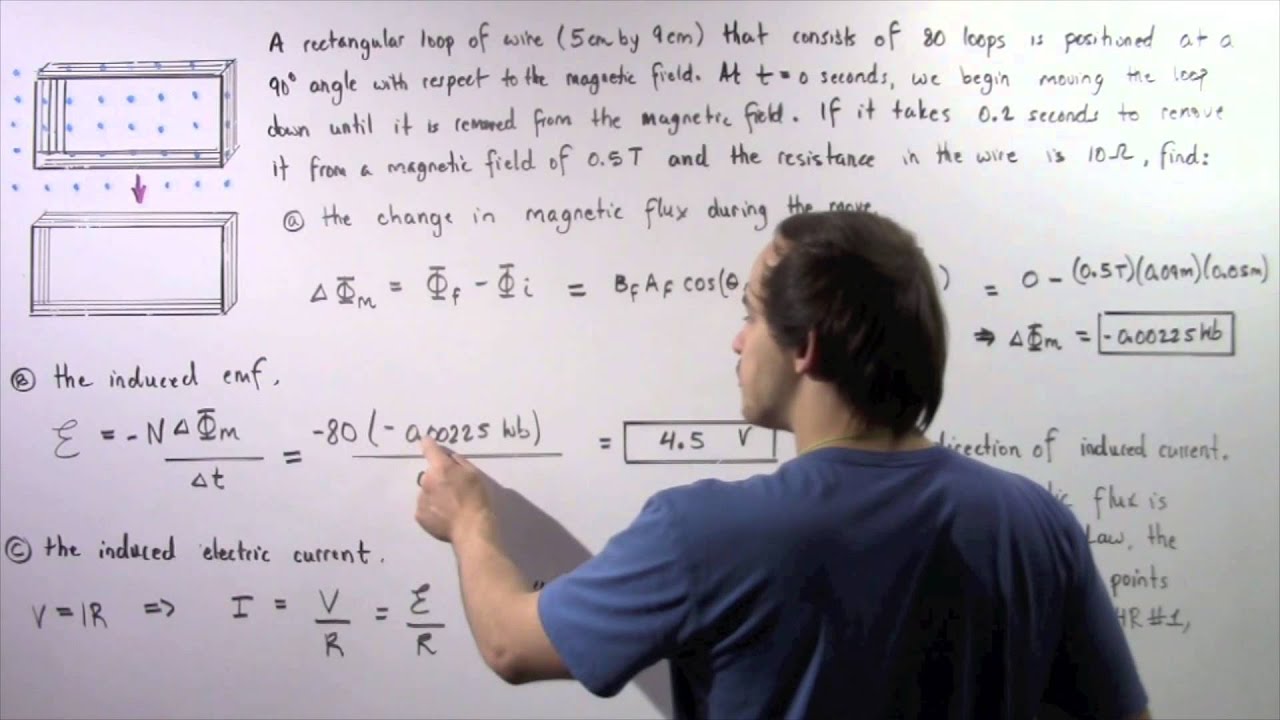 A rectangular loop of wire (5cm by 9cm) that consists of 80 loops is positioned at a
90° angle with respect to the magnetic field. At t=0 seconds, we begin moving the loop
down until it is removed from the magnetic field. If it takes 0.2 seconds to remove
it from a magnetic field of 0.5T and the resistance in the wire is 10Ω, find:
ⓐ the change in magnetic flux during the move.
ΔΦm = Φf - Φi = BfAf cos(θ ) = 0 - (0.5T)(0.09m)(0.05m)
⇒ ΔΦm = -0.00225 Wb
Ⓑ the induced emf.
ℰ = -N ΔΦm / Δt = -80(-0.00225 Wb) / = 4.5 V
direction of induced current.
flux is
Law, the
points
#1,
ⓒ the induced electric current.
V=IR => I = V/R = ℰ/R